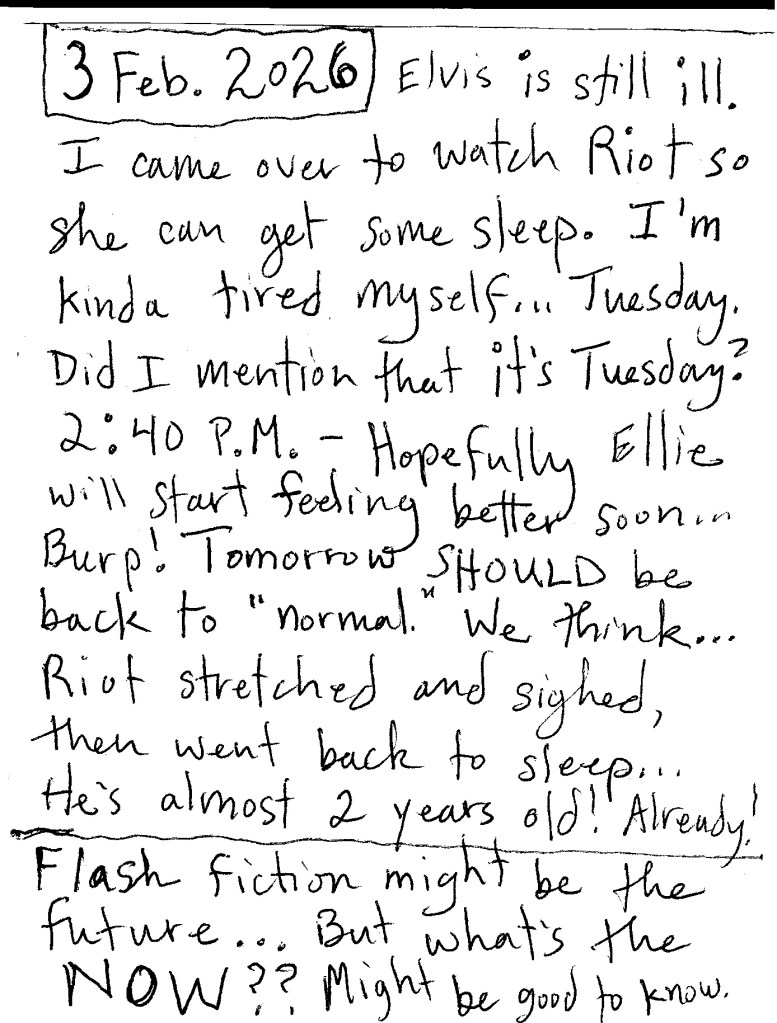 3 Feb. 2026 Elvis is still ill.
I came over to watch Riot so
she can get some sleep. I'm
kinda tired myself... Tuesday.
Did I mention that it's Tuesday?
2:40 P.M. - Hopefully Ellie
will start feeling better soon...
Burp! Tomorrow SHOULD be
back to "normal." We think...
Riot stretched and sighed,
then went back to sleep...
He's almost 2 years old! Already!
Flash fiction might be the
future... But what's the
NOW?? Might be good to know.